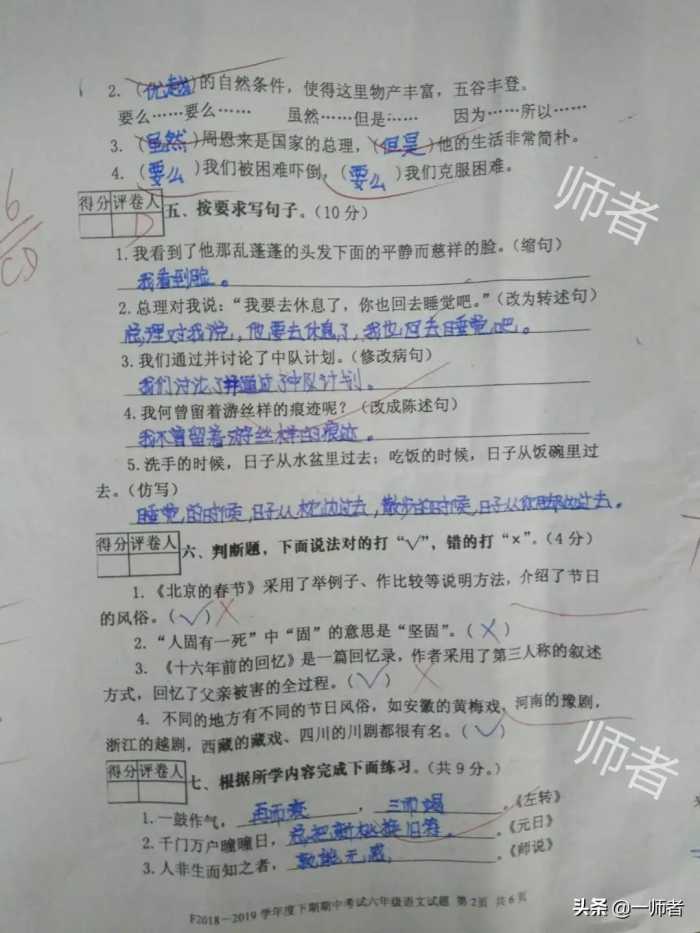 2.（优越）的自然条件，使得这里物产丰富，五谷丰登。
要么……要么…… 虽然……但是…… 因为……所以……
3.（虽然）周恩来是国家的总理，（但是）他的生活非常简朴。
4.（要么）我们被困难吓倒，（要么）我们克服困难。
师者
6
CD
得分 评卷人
D
五、按要求写句子。（10分）
1.我看到了他那乱蓬蓬的头发下面的平静而慈祥的脸。（缩句）
我看到脸。
2.总理对我说：“我要去休息了，你也回去睡觉吧。”（改为转述句）
总理对我说，他要去休息了，我也回去睡觉吧。
3.我们通过并讨论了中队计划。（修改病句）
我们讨论了并通过了中队计划。
4.我何曾留着游丝样的痕迹呢？（改成陈述句）
我不曾留着游丝样的痕迹。
5.洗手的时候，日子从水盆里过去；吃饭的时候，日子从饭碗里过
去。（仿写）
睡觉的时候，日子从枕边过去，散步的时候，日子从脚边过去。
得分 评卷人
六、判断题，下面说法对的打“√”，错的打“×”。（4分）
1.《北京的春节》采用了举例子、作比较等说明方法，介绍了节日
的风俗。（√）×
2.“人固有一死”中“固”的意思是“坚固”。（×）
3.《十六年前的回忆》是一篇回忆录，作者采用了第三人称的叙述
方式，回忆了父亲被害的全过程。（√）×
4. 不同的地方有不同的节日风俗，如安徽的黄梅戏、河南的豫剧，
浙江的越剧，西藏的藏戏、四川的川剧都很有名。（√）
师者
得分 评卷人
七、根据所学内容完成下面练习。（共9分。）
1.一鼓作气，再而衰，三而竭。《左转》
2.千门万户曈曈日，总把新桃换旧符。《元日》
3.人非生而知之者，孰能无惑。《师说》
F2018－2019学年度下期期中考试六年级语文试题 第2页 共6页
头条 @一师者